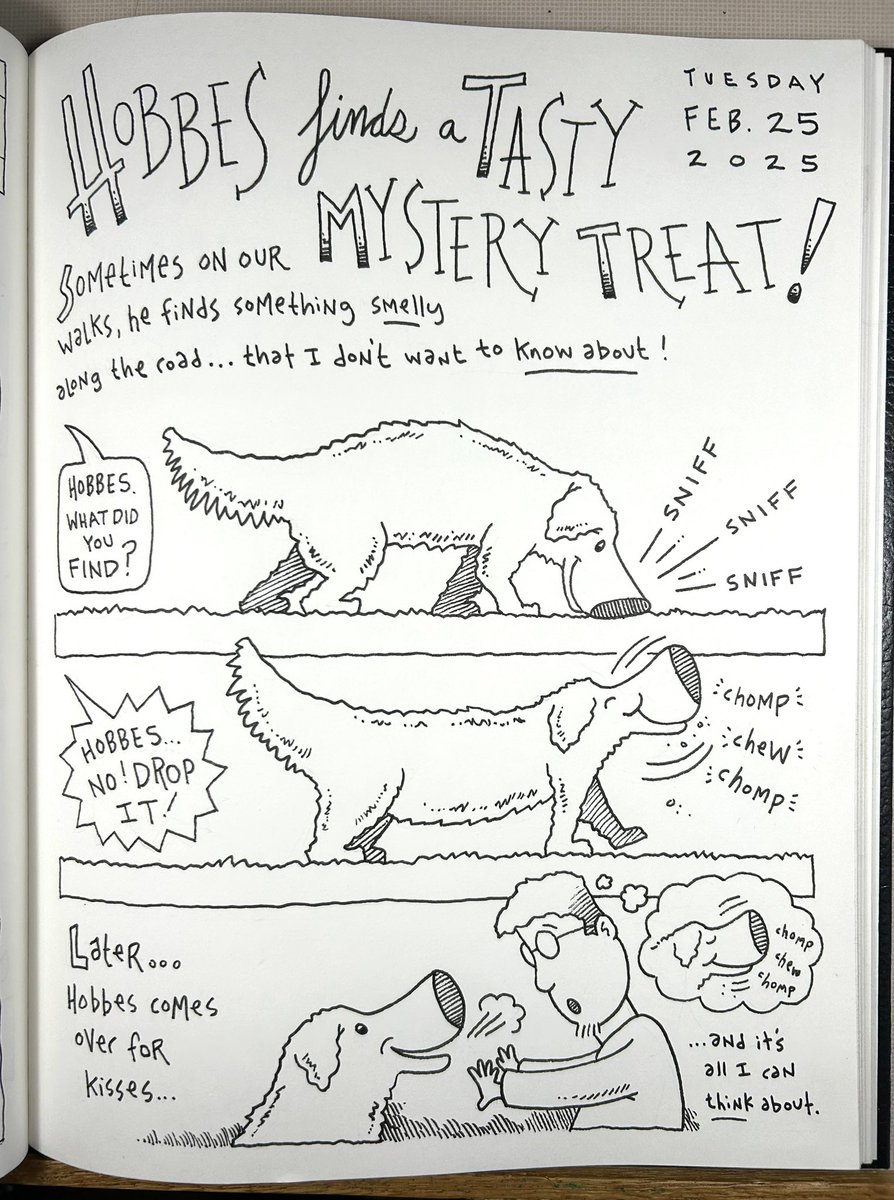 HOBBES finds a TASTY
MYSTERY TREAT!
TUESDAY
FEB. 25
2025
SOMETIMES ON OUR
WALKS, he finds something smelly
along the road... that I don't want to know about!
HOBBES.
WHAT DID
YOU
FIND?
SNIFF
SNIFF
SNIFF
HOBBES...
NO! DROP
IT!
chomp
chew
chomp
LATER...
Hobbes comes
over for
kisses...
chomp
chew
chomp
...and it's
all I can
think about.